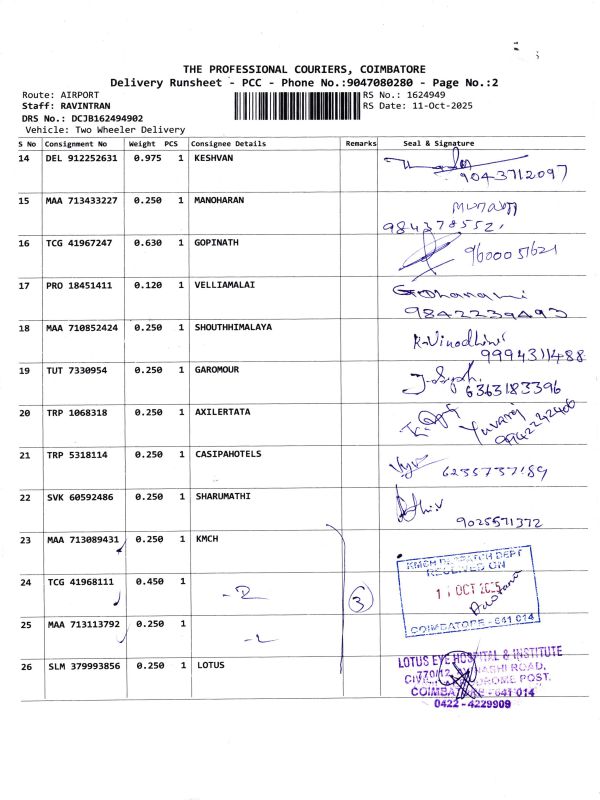 THE PROFESSIONAL COURIERS, COIMBATORE
Delivery Runsheet - PCC - Phone No.:9047080280 - Page No.:2
Route: AIRPORT RS No.: 1624949
Staff: RAVINTRAN RS Date: 11-Oct-2025
DRS No.: DCJB162494902
Vehicle: Two Wheeler Delivery
S No Consignment No Weight PCS Consignee Details Remarks Seal & Signature
14 DEL 912252631 0.975 1 KESHVAN
9043712097
15 MAA 713433227 0.250 1 MANOHARAN
984378552
16 TCG 41967247 0.630 1 GOPINATH
9600051621
17 PRO 18451411 0.120 1 VELLIAMALAI
9842239493
18 MAA 710852424 0.250 1 SHOUTHHIMALAYA
R-Vinodhini
9994311488
19 TUT 7330954 0.250 1 GAROMOUR
6363183396
20 TRP 1068318 0.250 1 AXILERTATA
Yuvaraj
21 TRP 5318114 0.250 1 CASIPAHOTELS
6235737189
22 SVK 60592486 0.250 1 SHARUMATHI
9025571372
23 MAA 713089431 0.250 1 KMCH
KMCH DESPATCH DEPT
RECEIVED ON
24 TCG 41968111 0.450 1
3
OCT 2025
25 MAA 713113792 0.250 1
COIMBATORE - 641 014
26 SLM 379993856 0.250 1 LOTUS
LOTUS EYE HOSPITAL & INSTITUTE
770/12, AVINASHI ROAD,
CIVIL AERODROME POST,
COIMBATORE - 641 014
0422 - 4229909